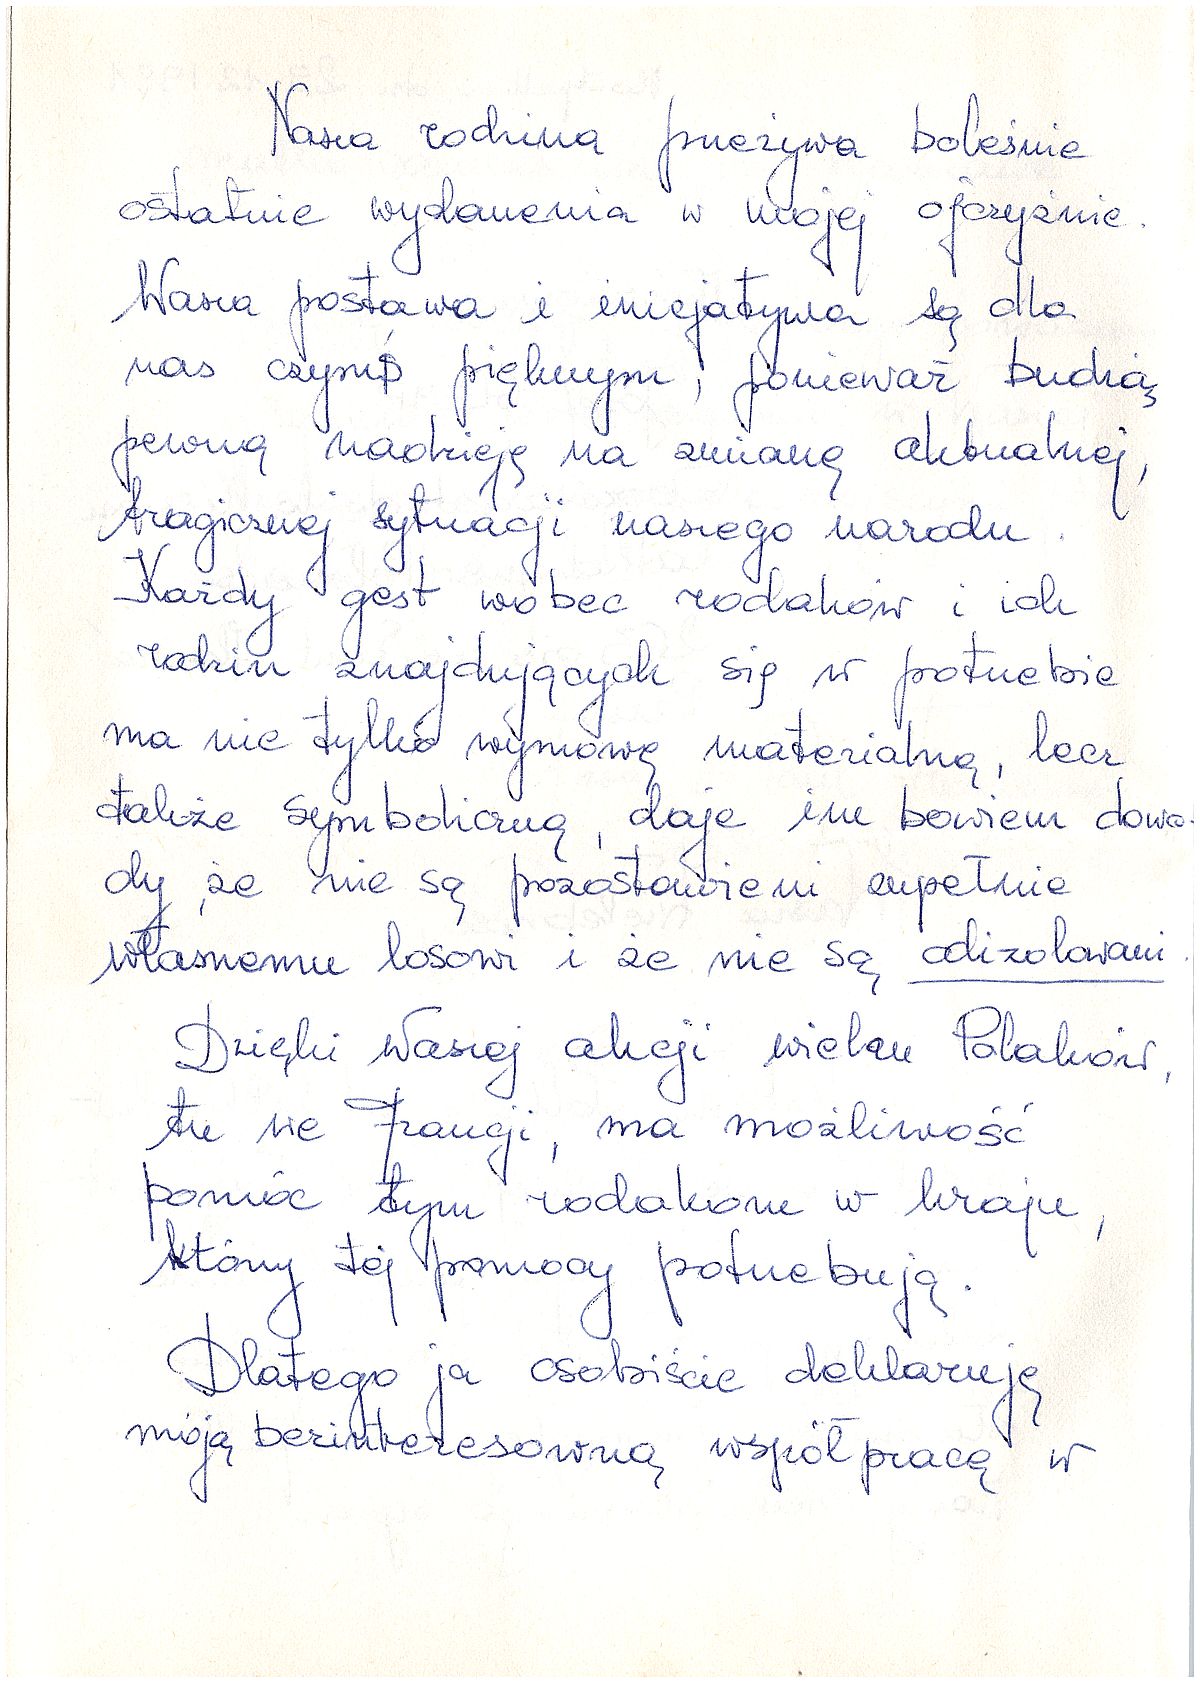 Nasza rodzina przeżywa boleśnie
ostatnie wydarzenia w mojej ojczyźnie.
Wasza postawa i inicjatywa są dla
nas czymś pięknym, ponieważ budzą
pewną nadzieję na zmianę aktualnej,
tragicznej sytuacji naszego narodu.
Każdy gest wobec rodaków i ich
rodzin znajdujących się w potrzebie
ma nie tylko wymowę materialną, lecz
także symboliczną, daje im bowiem dowo-
dy, że nie są pozostawieni zupełnie
własnemu losowi i że nie są odizolowani.
Dzięki Waszej akcji wielu Polaków,
tu we Francji, ma możliwość
pomóc tym rodakom w kraju,
którzy tej pomocy potrzebują.
Dlatego ja osobiście deklaruję
moją bezinteresowną współpracę w